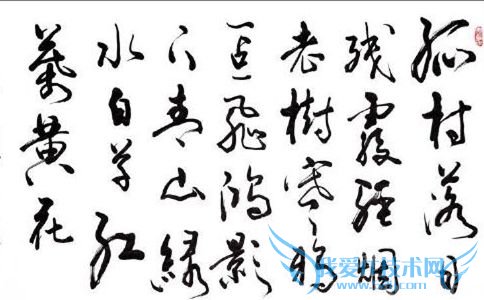 孤村落日
残霞轻烟
老樹寒鸦
一点飞鸿影
下青山绿
水白草红
葉黄花
我爱IT技术网